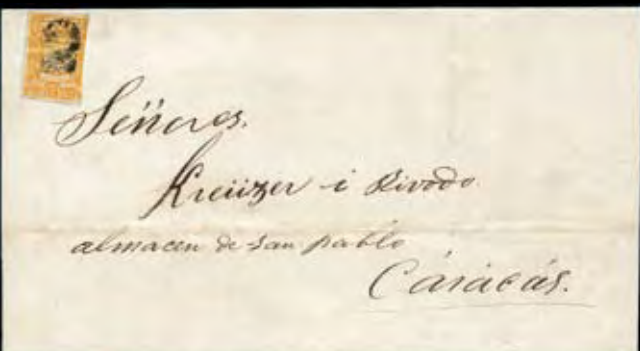 Señores.
Kreüzer i Rivodo
almacen de San pablo
Cárácás.